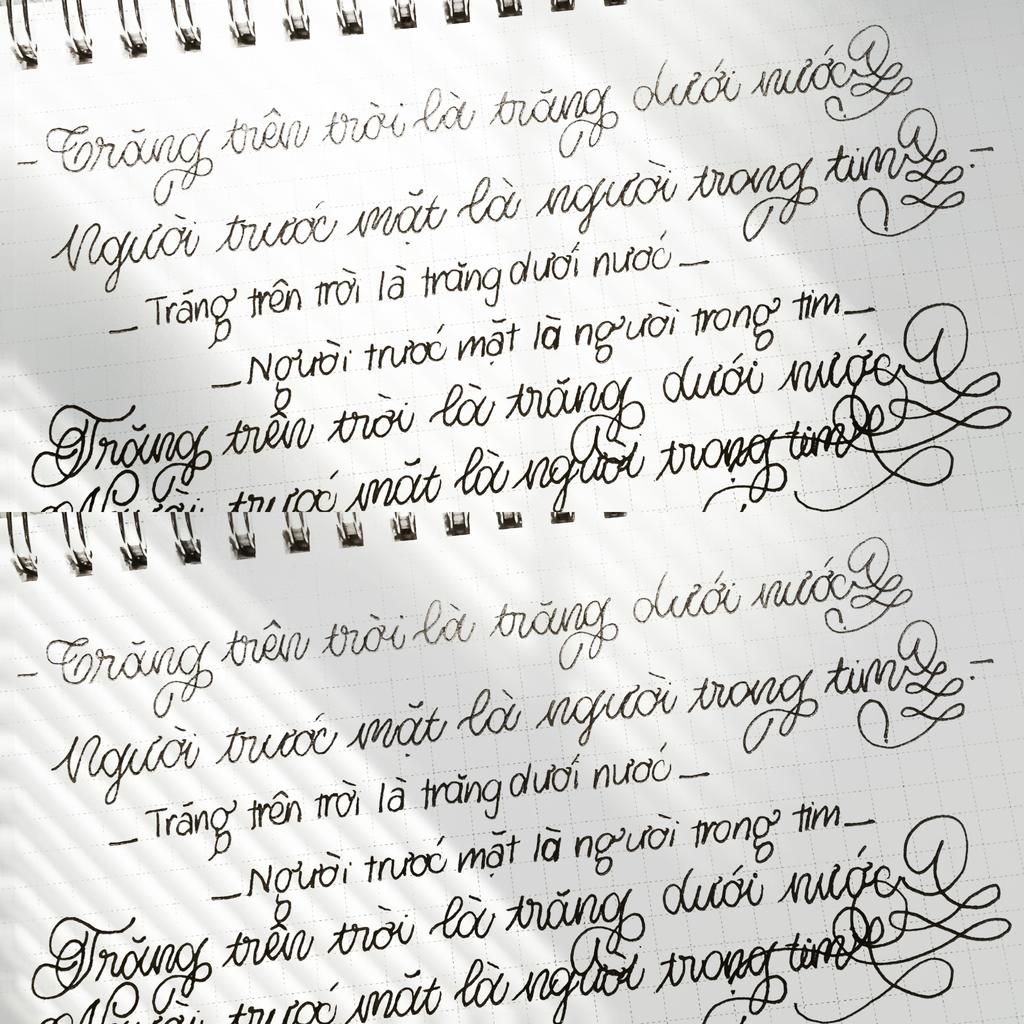 - Trăng trên trời là trăng dưới nước
Người trước mặt là người trong tim -
_ Trăng trên trời là trăng dưới nước _
_ Người trước mặt là người trong tim _
Trăng trên trời là trăng dưới nước
Người trước mặt là người trong tim
- Trăng trên trời là trăng dưới nước
Người trước mặt là người trong tim -
_ Trăng trên trời là trăng dưới nước _
_ Người trước mặt là người trong tim _
Trăng trên trời là trăng dưới nước
Người trước mặt là người trong tim